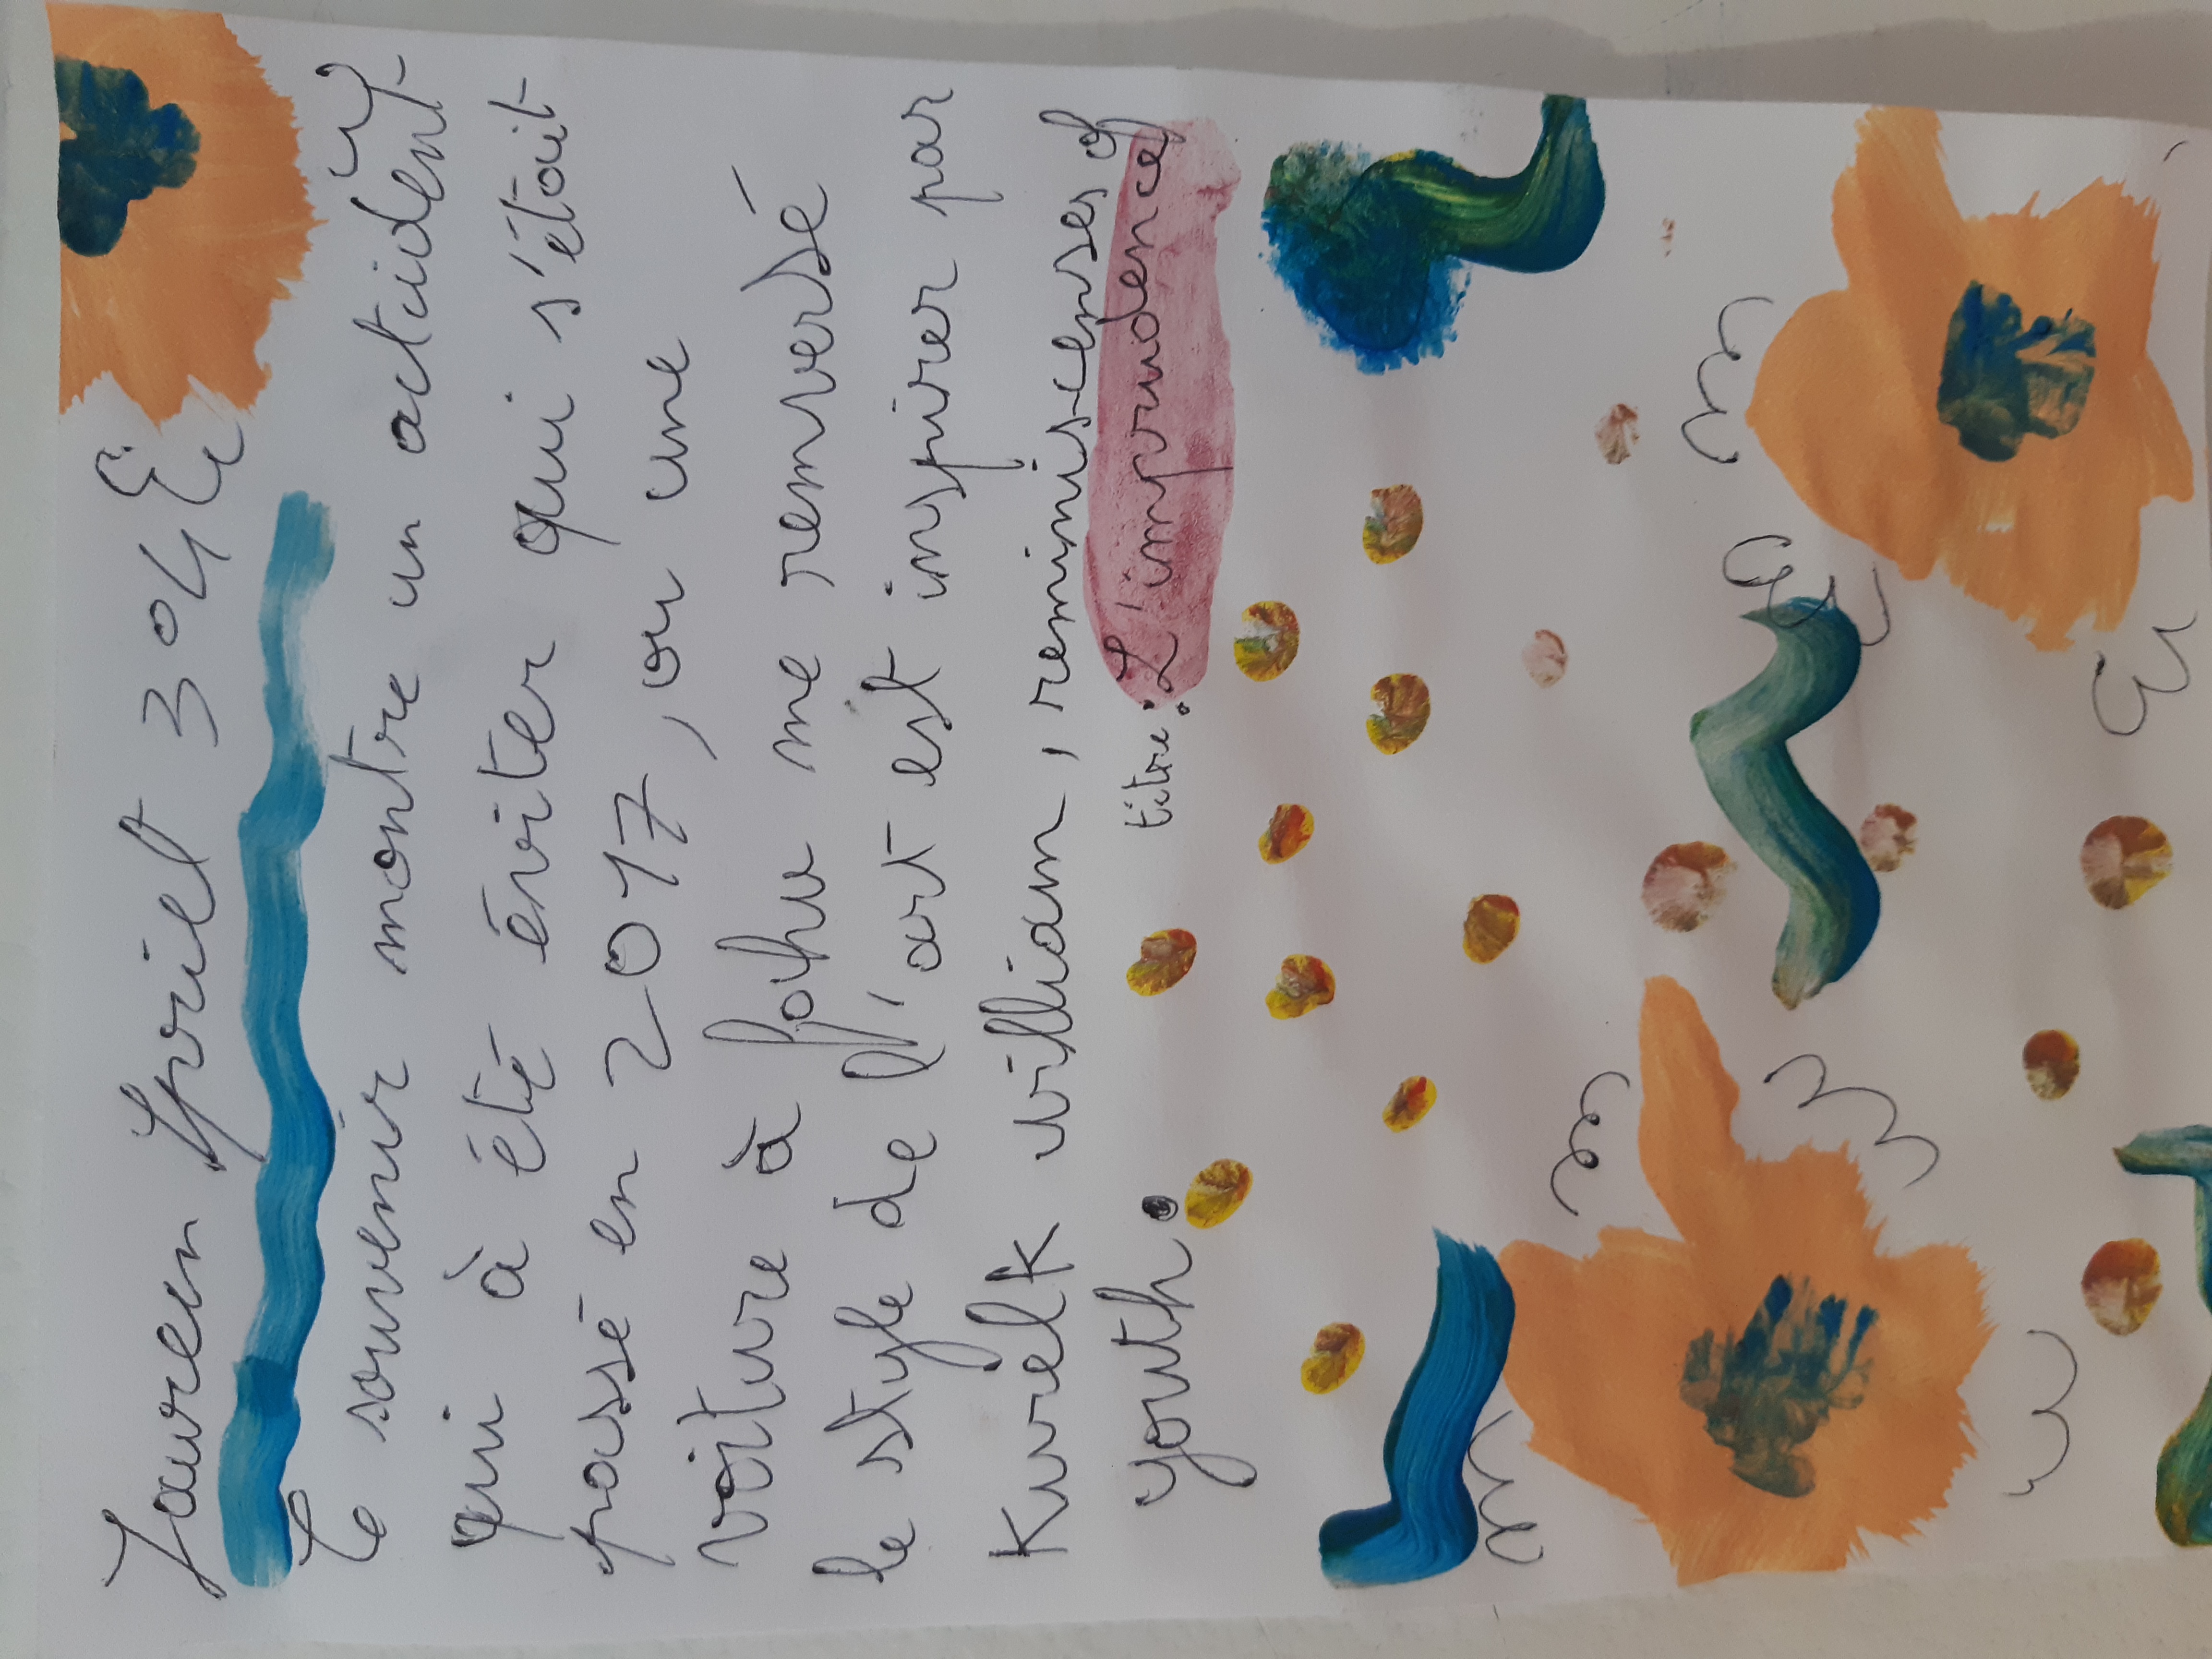 Laureen Spriet 304
Le souvenir montre un actident
qui à été éviter qui s'était
passé en 2017, ou une
voiture à fohu me renversé
le style de l'art est inspirer par
Kurelk villiam, reminiscenses of
youth.
titre: L'imprudence